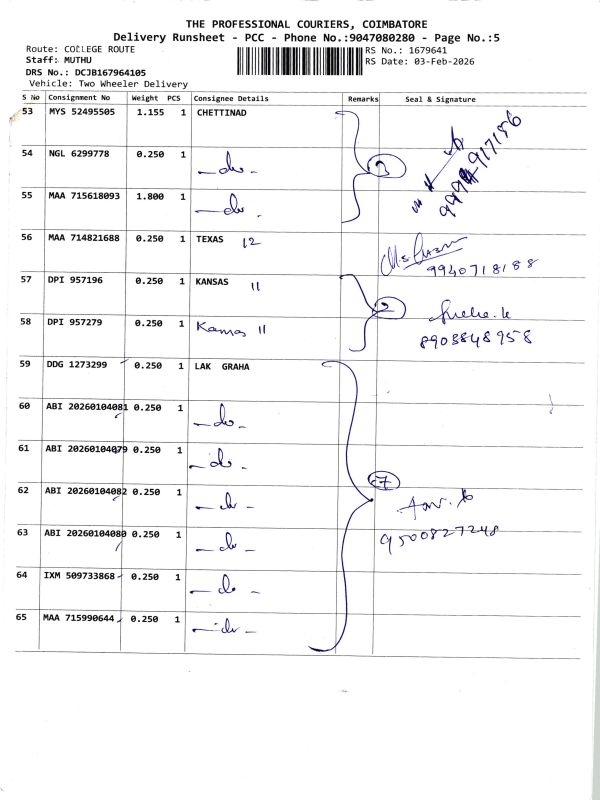 THE PROFESSIONAL COURIERS, COIMBATORE
Delivery Runsheet - PCC - Phone No.:9047080280 - Page No.:5
Route: COLLEGE ROUTE
RS No.: 1679641
Staff: MUTHU
RS Date: 03-Feb-2026
DRS No.: DCJB167964105
Vehicle: Two Wheeler Delivery
S No Consignment No Weight PCS Consignee Details Remarks Seal & Signature
53 MYS 52495505 1.155 1 CHETTINAD
54 NGL 6299778 0.250 1 -do- 3
55 MAA 715618093 1.800 1 -do-
56 MAA 714821688 0.250 1 TEXAS 12
9940718188
57 DPI 957196 0.250 1 KANSAS 11 2
58 DPI 957279 0.250 1 Kansas 11 8903848958
59 DDG 1273299 0.250 1 LAK GRAHA
60 ABI 20260104081 0.250 1 -do-
61 ABI 20260104079 0.250 1 -do-
62 ABI 20260104082 0.250 1 -do- 7
63 ABI 20260104080 0.250 1 -do- 9500827248
64 IXM 509733868 0.250 1 -do-
65 MAA 715990644 0.250 1 -do-